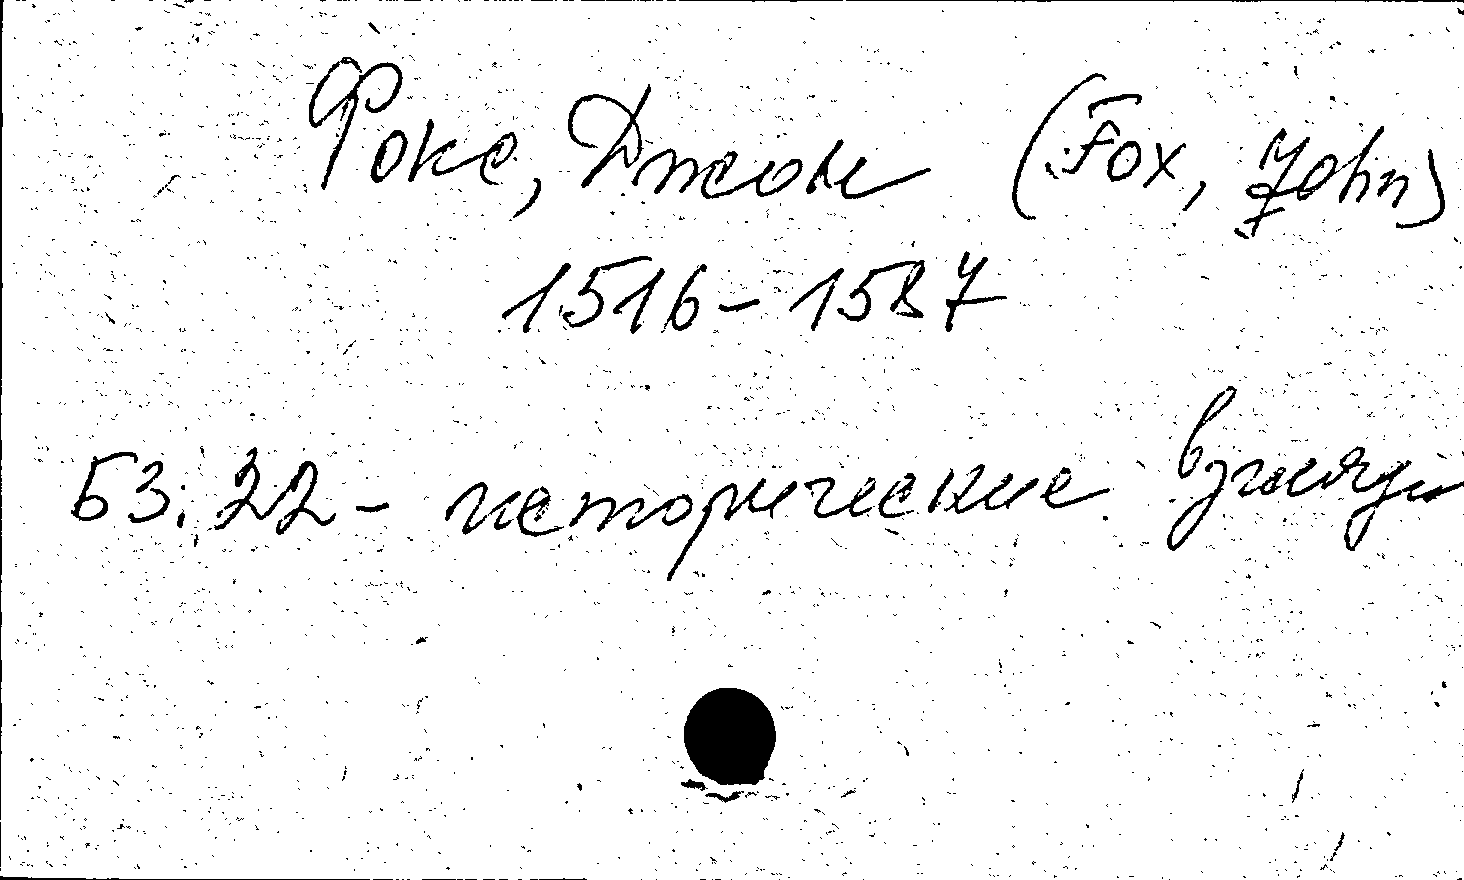 Фокс, Джон (Fox, John)
1516-1587
Б3.22 - исторические взгляды